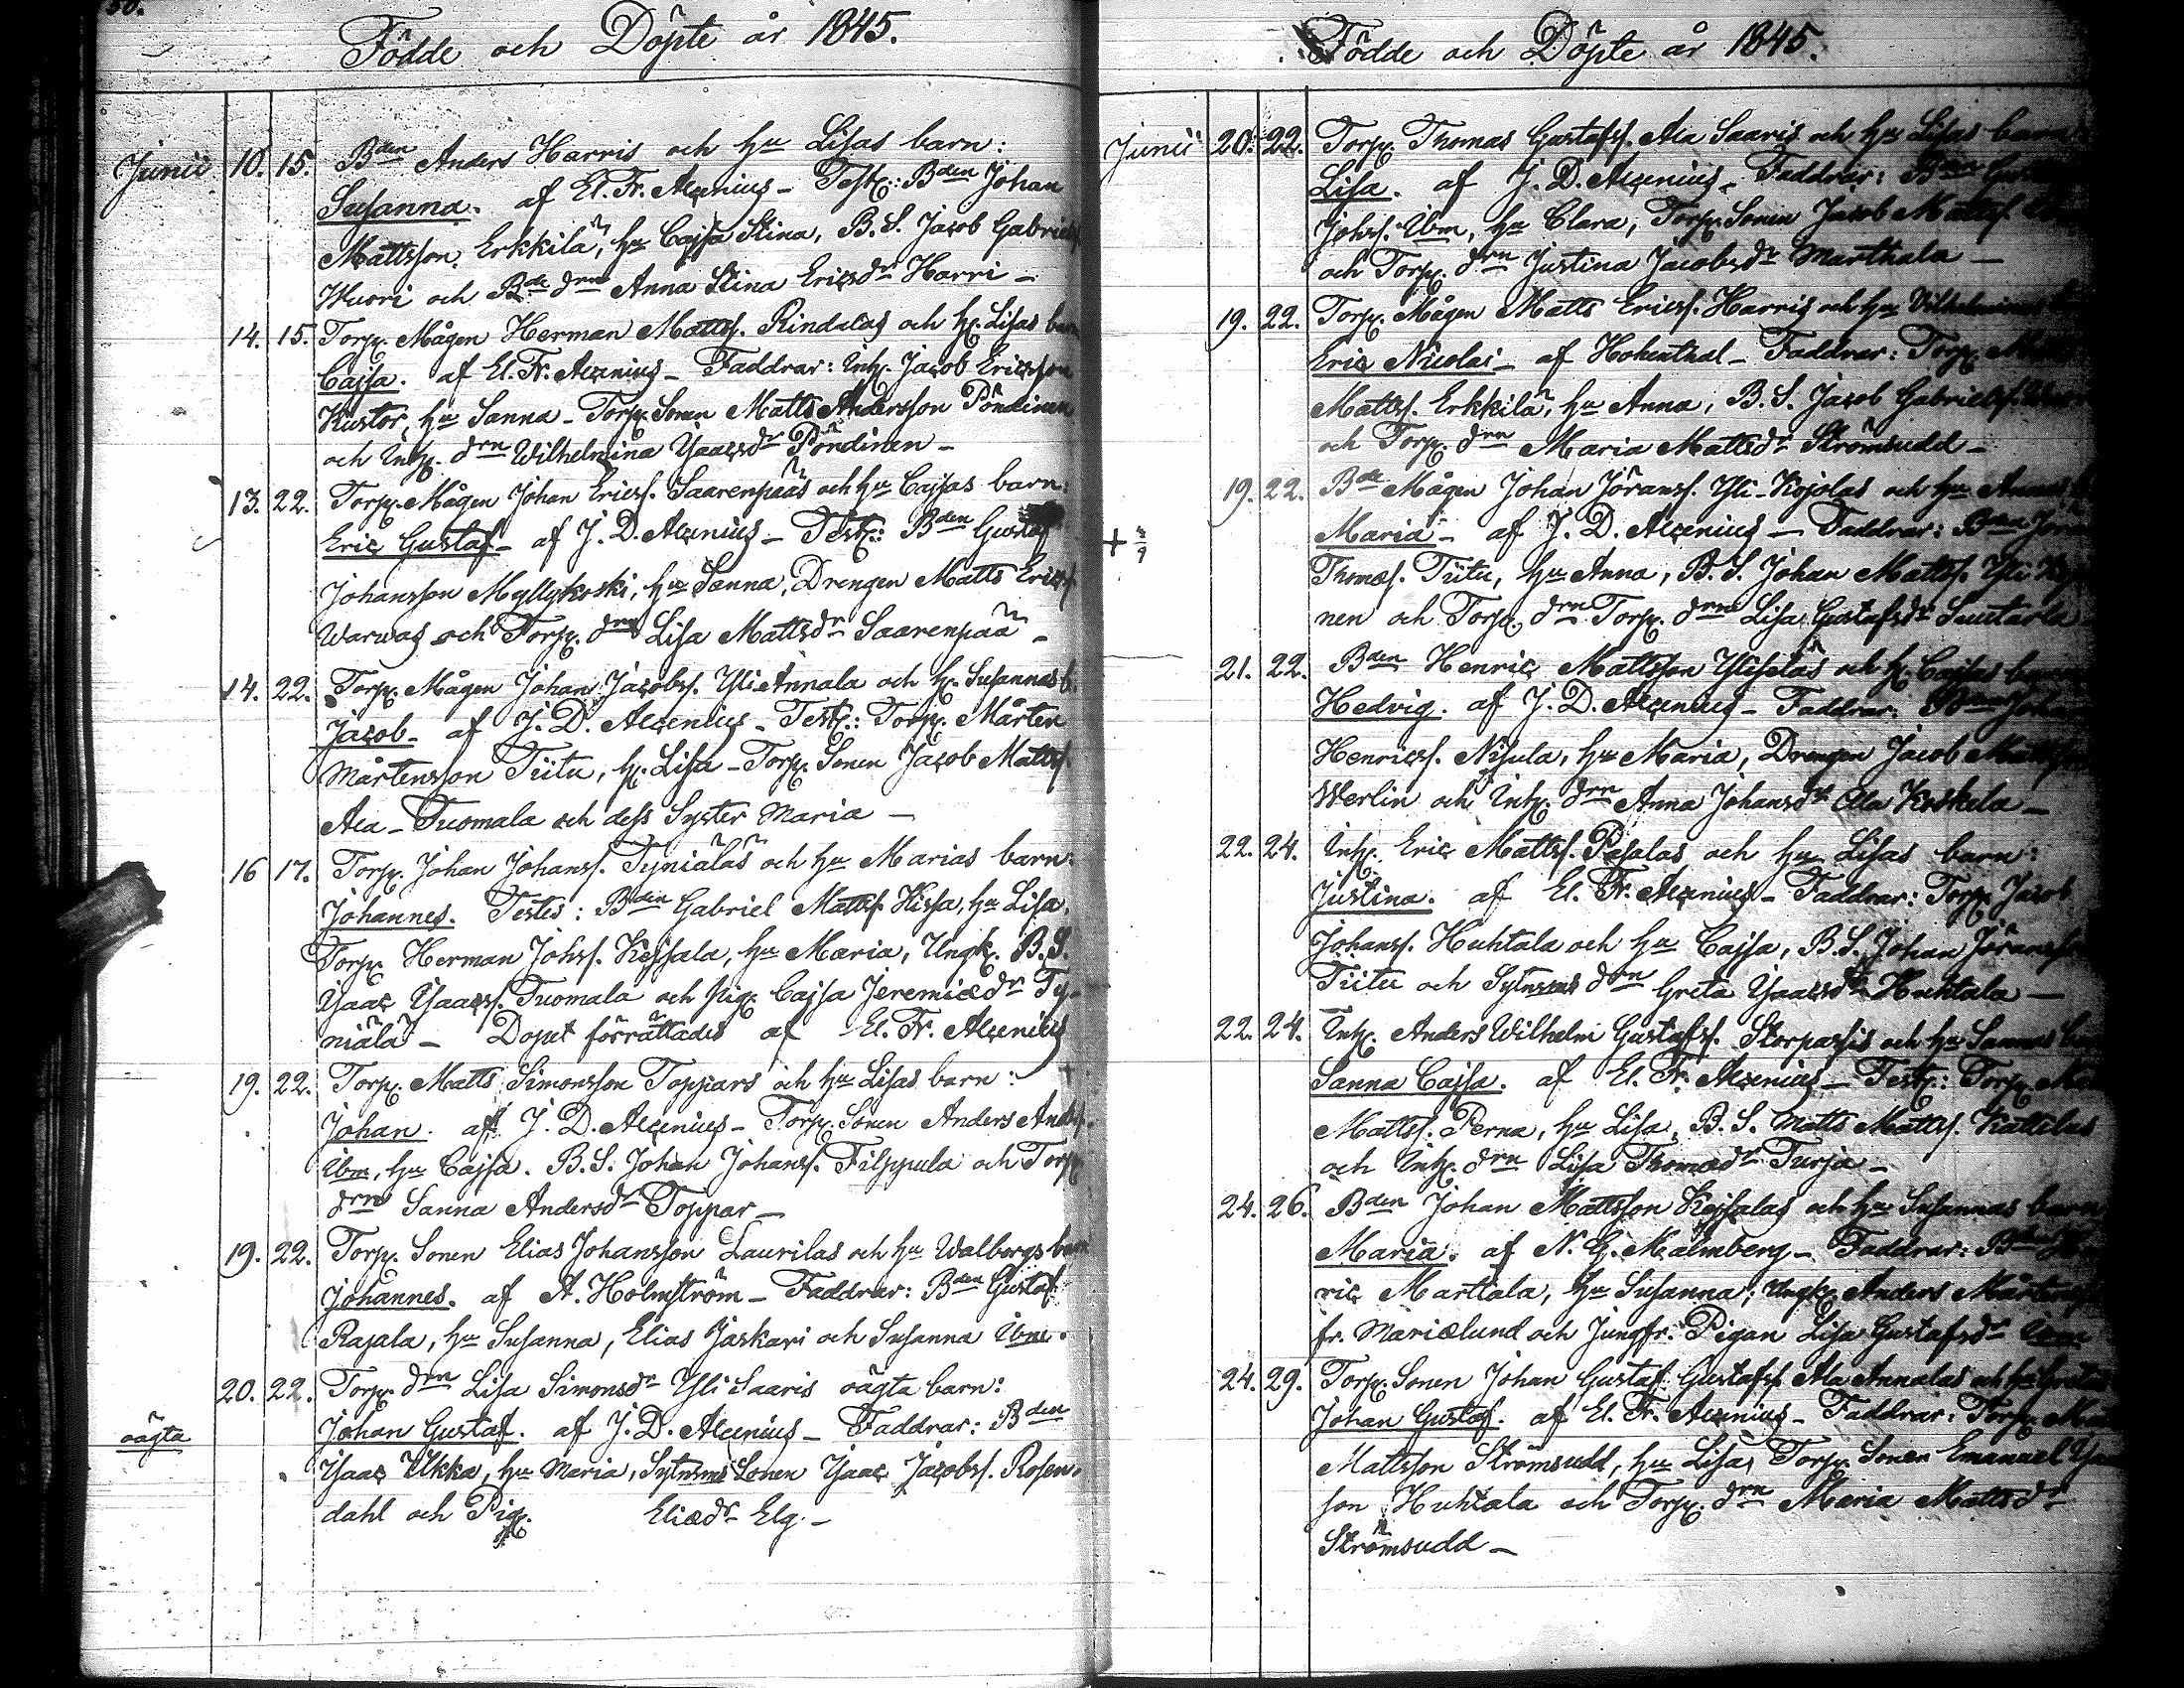 50.
Födde och Döpte år 1845.
Junii 10. 15. Bden Anders Harris och hu Lisas barn:
Susanna. af El. Fr. Alcenius – Test: Bden Johan
Mattsson Erkkilä, hu Cajsa Stina, B. S. Jacob Gabriels
Wuori och Bde drn Anna Stina Ericsdr Harri –
14. 15. Torp. Mågen Herman Mattss. Rindalas och h. Lisas barn
Cajsa. af El. Fr. Alcenius – Faddrar: Inh. Jacob Ericsson
Kustor, hu Sanna – Torp. Sonen Matts Andersson Pöndinen
och Inh. drn Wilhelmina Isaacsdr Pöndinen –
13. 22. Torp. Mågen Johan Ericss. Saarenpääs och hu Cajsas barn:
Eric Gustaf – af J. D. Alcenius – Test: Bden Gustaf
Johansson Myllykoski, hu Sanna, Drengen Matts Ericss
Warwas och Torp. drn Lisa Mattsdr Saarenpää –
14. 22. Torp. Mågen Johan Jacobss. Yli Annala och h. Susannas b.
Jacob – af J. D. Alcenius – Test: Torp. Mårten
Mårtensson Tiitu, h. Lisa – Torp. Sonen Jacob Mattss.
Ala – Tuomala och dess Syster Maria –
16 17. Torp. Johan Johanss. Tyniäläs och hu Marias barn:
Johannes. Testes: Bden Gabriel Mattss. Hissa, hu Lisa,
Torp. Herman Johss. Kejsala, hu Maria, Ungk. B. S.
Isaac Isaacss. Tuomala och Pig. Cajsa Jeremiædr Ty-
niälä – Dopet förrättades af El. Fr. Alcenius
19. 22. Torp. Matts Simonsson Toppars och hu Lisas barn:
Johan. af J. D. Alcenius – Torp. Sonen Anders Anderss.
Ibm, hu Cajsa. B. S. Johan Johanss. Filppula och Torp.
drn Sanna Andersdr Toppar –
19. 22. Torp. Sonen Elias Johansson Laurilas och hu Walborgs barn
Johannes. af A. Holmström – Faddrar: Bden Gustaf
Rajala, hu Susanna, Elias Jaskari och Susanna Ibm.
20. 22. Torp. drn Lisa Simonsdr Yli Saaris oägta barn:
oägta Johan Gustaf. af J. D. Alcenius – Faddrar: Bden
Isaac Ukka, hu Maria, Sytnsms Sonen Isaac Jacobss. Rosen-
dahl och Pig. Eliædr Elg. –
Födde och Döpte år 1845.
Junii 20. 22. Torp. Thomas Gustafss. Ala Saaris och hu Lisas barn
Lisa. af J. D. Alcenius. Faddrar: Bden
Johss. Ibm, hu Clara, Torp. Sonen Jacob Mattss.
och Torp. drn Justina Jacobsdr Marthala –
19. 22. Torp. Mågen Matts Ericss. Harris och hu Vilhelminas
Eric Nicolai – af Hohenthal – Faddrar: Torp.
Mattss. Erkkilä, hu Anna, B. S. Jacob Gabrielss.
och Torp. drn Maria Mattsdr Strömsudd –
19. 22. Bde Mågen Johan Jöranss. Yli-Kojolas och hu Annas
+ 4/9 Maria – af J. D. Alcenius – Faddrar: Bden
Thomæs. Tiitu, hu Anna, B. S. Johan Mattss. Yli
nen och Torp. drn Torp. drn Lisa Gustafsdr Suutarla
21. 22. Bden Henric Mattsson Yliseläs och h. Cajsas barn
Hedvig. af J. D. Alcenius – Faddrar: Bden
Henricss. Nisula, hu Maria, Drengen Jacob
Werlin och Inh. drn Anna Johansdr Ella Koskela –
22. 24. Inh. Eric Mattss. Pasalas och hu Lisas barn:
Justina. af El. Fr. Alcenius – Faddrar: Torp. Jacob
Johanss. Huhtala och hu Cajsa, B. S. Johan Jöransson
Tiitu och Sytnsms drn Greta Isaacsdr Huhtala –
22. 24. Inh. Anders Wilhelm Gustafss. Storpassis och hu Sannas
Sanna Cajsa. af El. Fr. Alcenius – Test: Torp.
Mattss. Perna, hu Lisa, B. S. Matts Mattss. Kattilas
och Inh. drn Lisa Thomædr Turja –
24. 26. Bden Johan Mattsson Kejsalas och hu Susannas barn
Maria. af N. G. Malmberg – Faddrar: Bden
ric Marttala, hu Susanna, Ungk. Anders Mårtenss
fr. Mariælund och Jungfr. Pigan Lisa Gustafsdr
24. 29. Torp. Sonen Johan Gustaf Gustafss. Ala Annalas och hu
Johan Gustaf. af El. Fr. Alcenius – Faddrar: Torp.
Mattsson Strömsudd, hu Lisa, Torp. Sonen Emanuel
son Huhtala och Torp. drn Maria Mattsdr
Strömsudd –